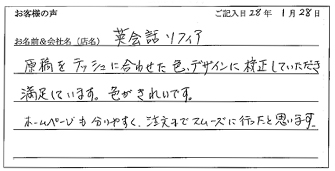 お客様の声 ご記入日 28年 1月 28日
お名前&会社名(店名) 英会話ソフィア
原稿をテッシュに合わせた色、デザインに校正していただき
満足しています。色がきれいです。
ホームページも分りやすく、注文までスムーズに行ったと思います。